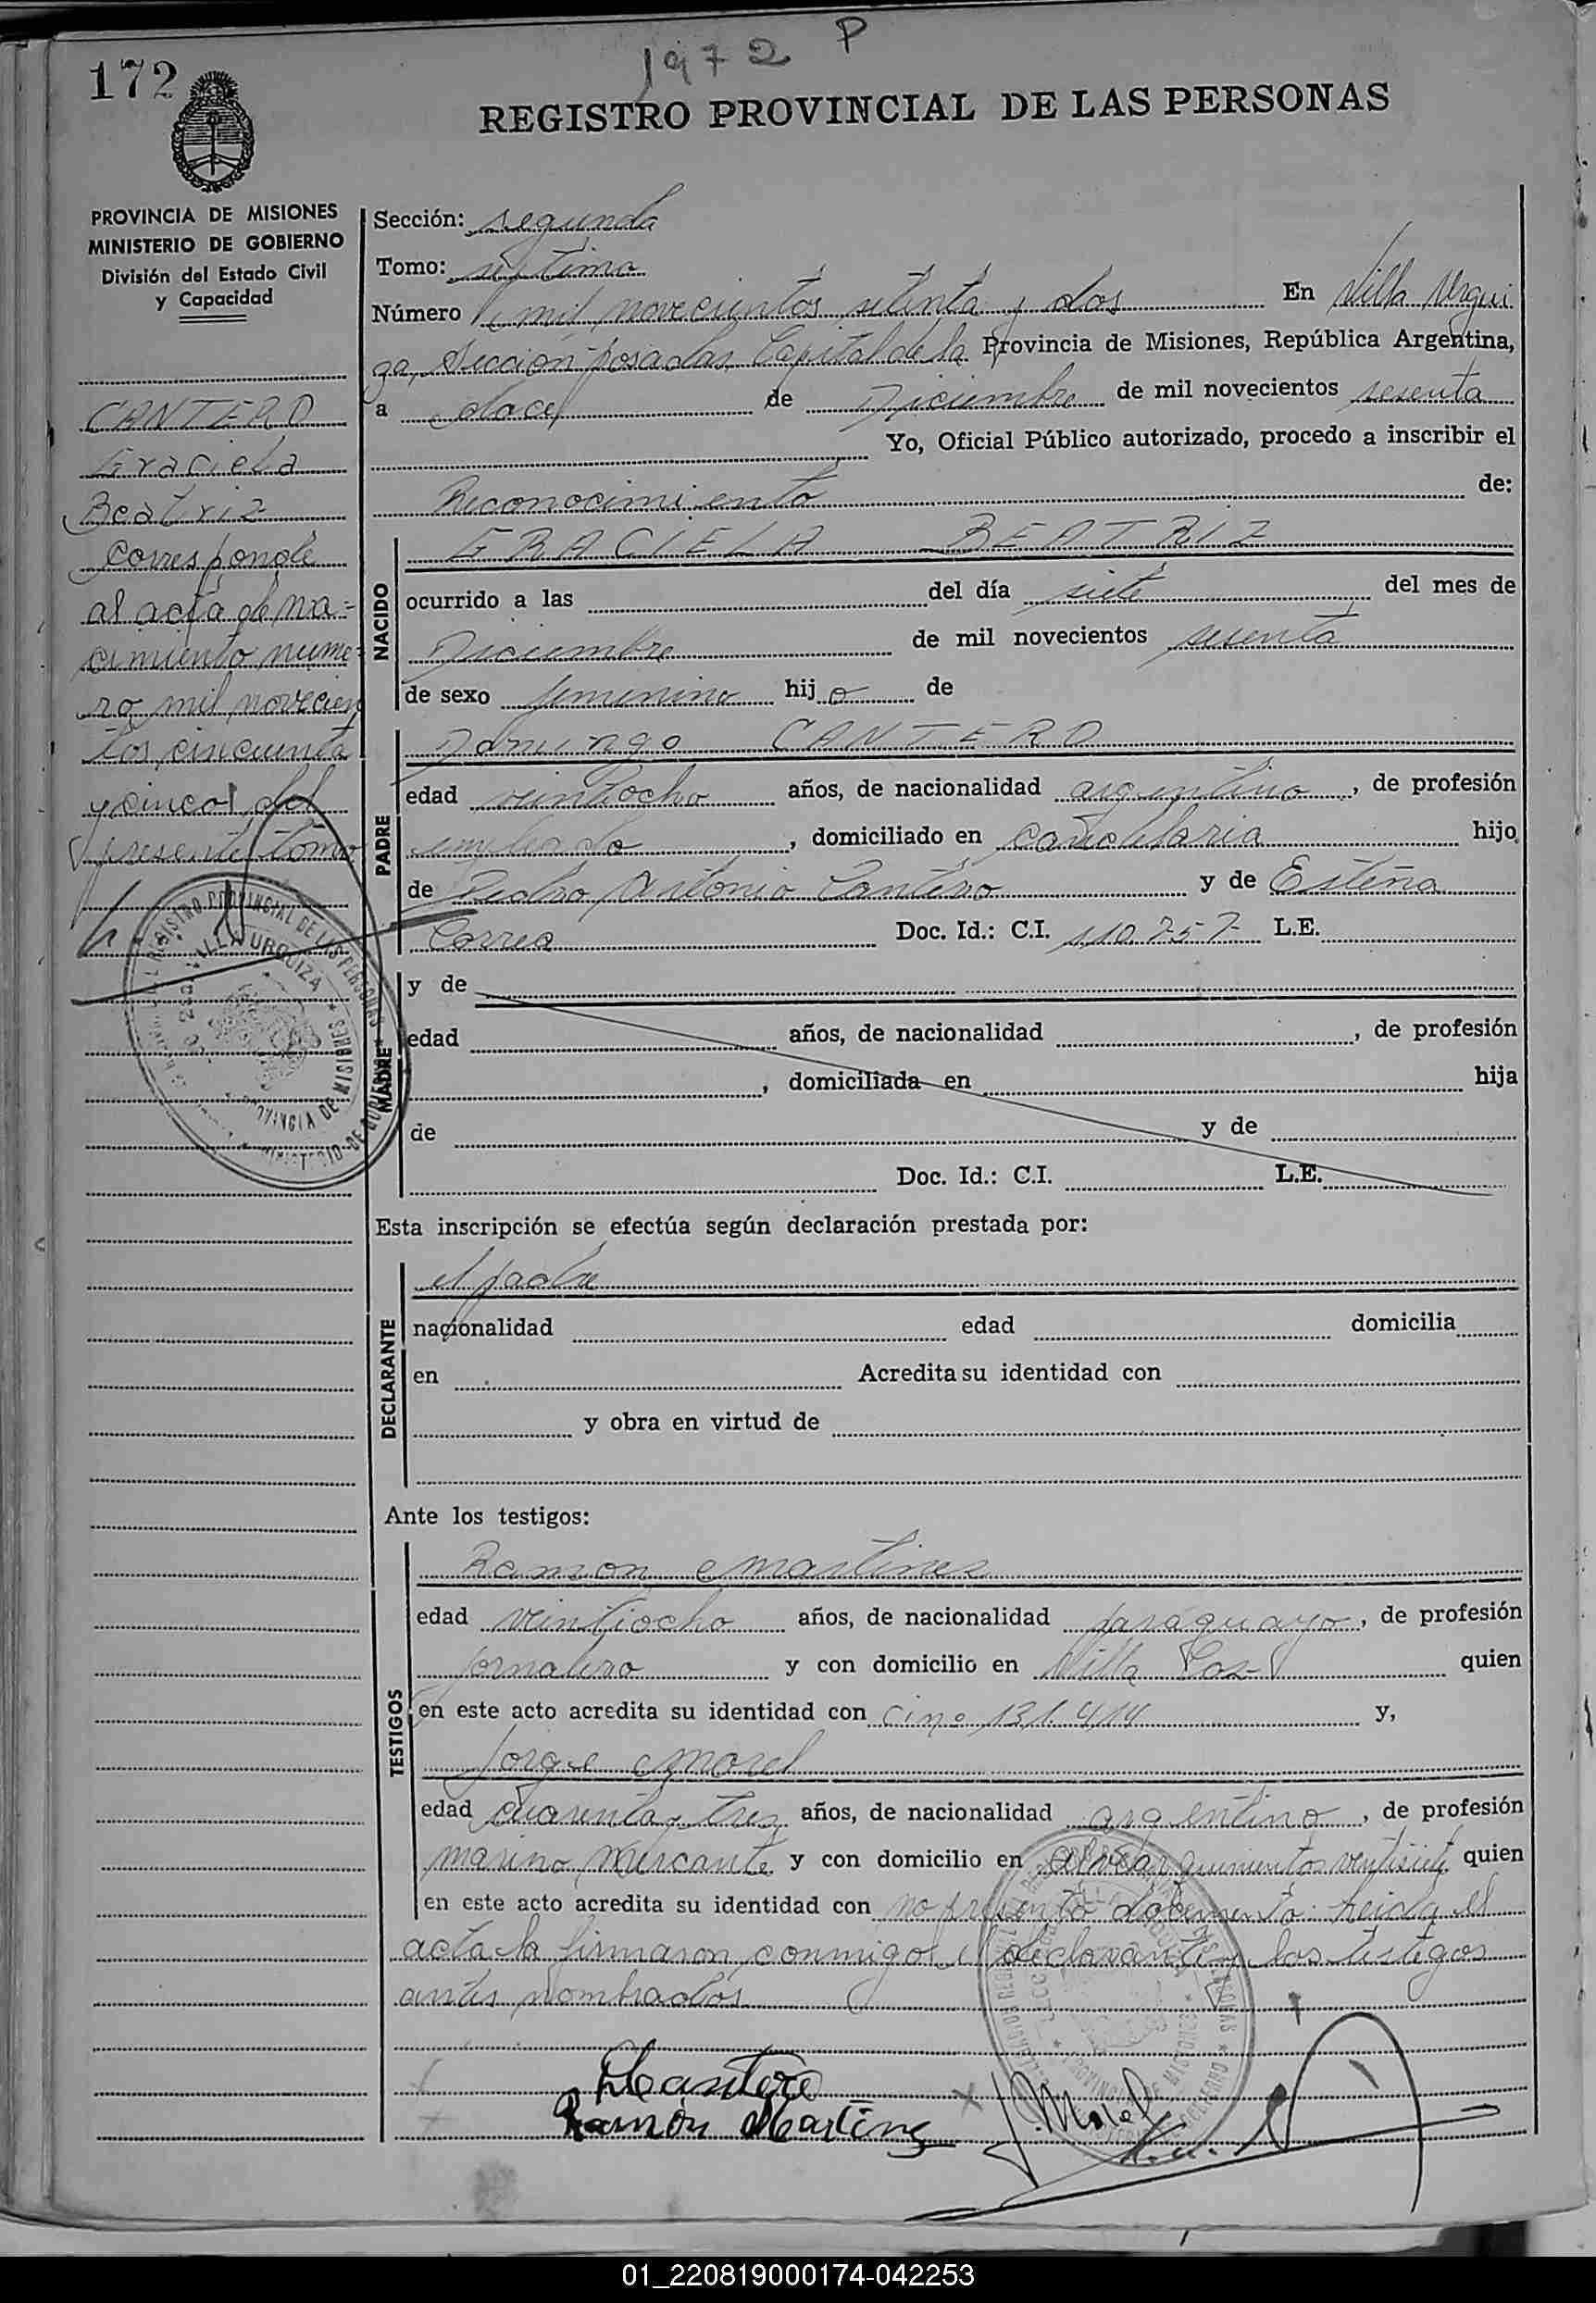 1972 P
172
REGISTRO PROVINCIAL DE LAS PERSONAS
PROVINCIA DE MISIONES
MINISTERIO DE GOBIERNO
División del Estado Civil
y Capacidad
CANTERO
Graciela
Beatriz
Corresponde
al acta de na-
cimiento nume-
ro mil novecien
tos cincuenta
y cinco del
presente tomo
Sección: segunda
Tomo: septimo
Número mil novecientos setenta y dos En Villa Urqui
za, Sección posadas, Capital de la Provincia de Misiones, República Argentina,
a doce de Diciembre de mil novecientos sesenta
Yo, Oficial Público autorizado, procedo a inscribir el
Reconocimiento de:
NACIDO
GRACIELA BEATRIZ
ocurrido a las del día siete del mes de
Diciembre de mil novecientos sesenta
de sexo femenino hijo de
PADRE
Domingo CANTERO
edad veintiocho años, de nacionalidad argentino, de profesión
empleado, domiciliado en Candelaria hijo
de Pedro Antonio Cantero y de
Correa Doc. Id.: C.I. 110.757 L.E.
MADRE
y de
edad años, de nacionalidad , de profesión
, domiciliada en hija
de y de
Doc. Id.: C.I. L.E.
Esta inscripción se efectúa según declaración prestada por:
DECLARANTE
el padre
nacionalidad edad domicilia
en Acredita su identidad con
y obra en virtud de
Ante los testigos:
TESTIGOS
Ramon Martinez
edad veintiocho años, de nacionalidad paraguayo, de profesión
jornalero y con domicilio en Villa quien
en este acto acredita su identidad con ci nº 131.414 y,
Jorge Morel
edad cuarenta y tres años, de nacionalidad argentino, de profesión
marino mercante y con domicilio en alvear quinientos ventisiete quien
en este acto acredita su identidad con no presentó documento. Leida el
acta la firmaron conmigo el declarante y los testigos
antes nombrados
DCantero
Ramón Martinez
J. Morel
REGISTRO PROVINCIAL DE LAS PERSONAS
VILLA URQUIZA
PROVINCIA DE MISIONES
MINISTERIO DE GOBIERNO
01_220819000174-042253